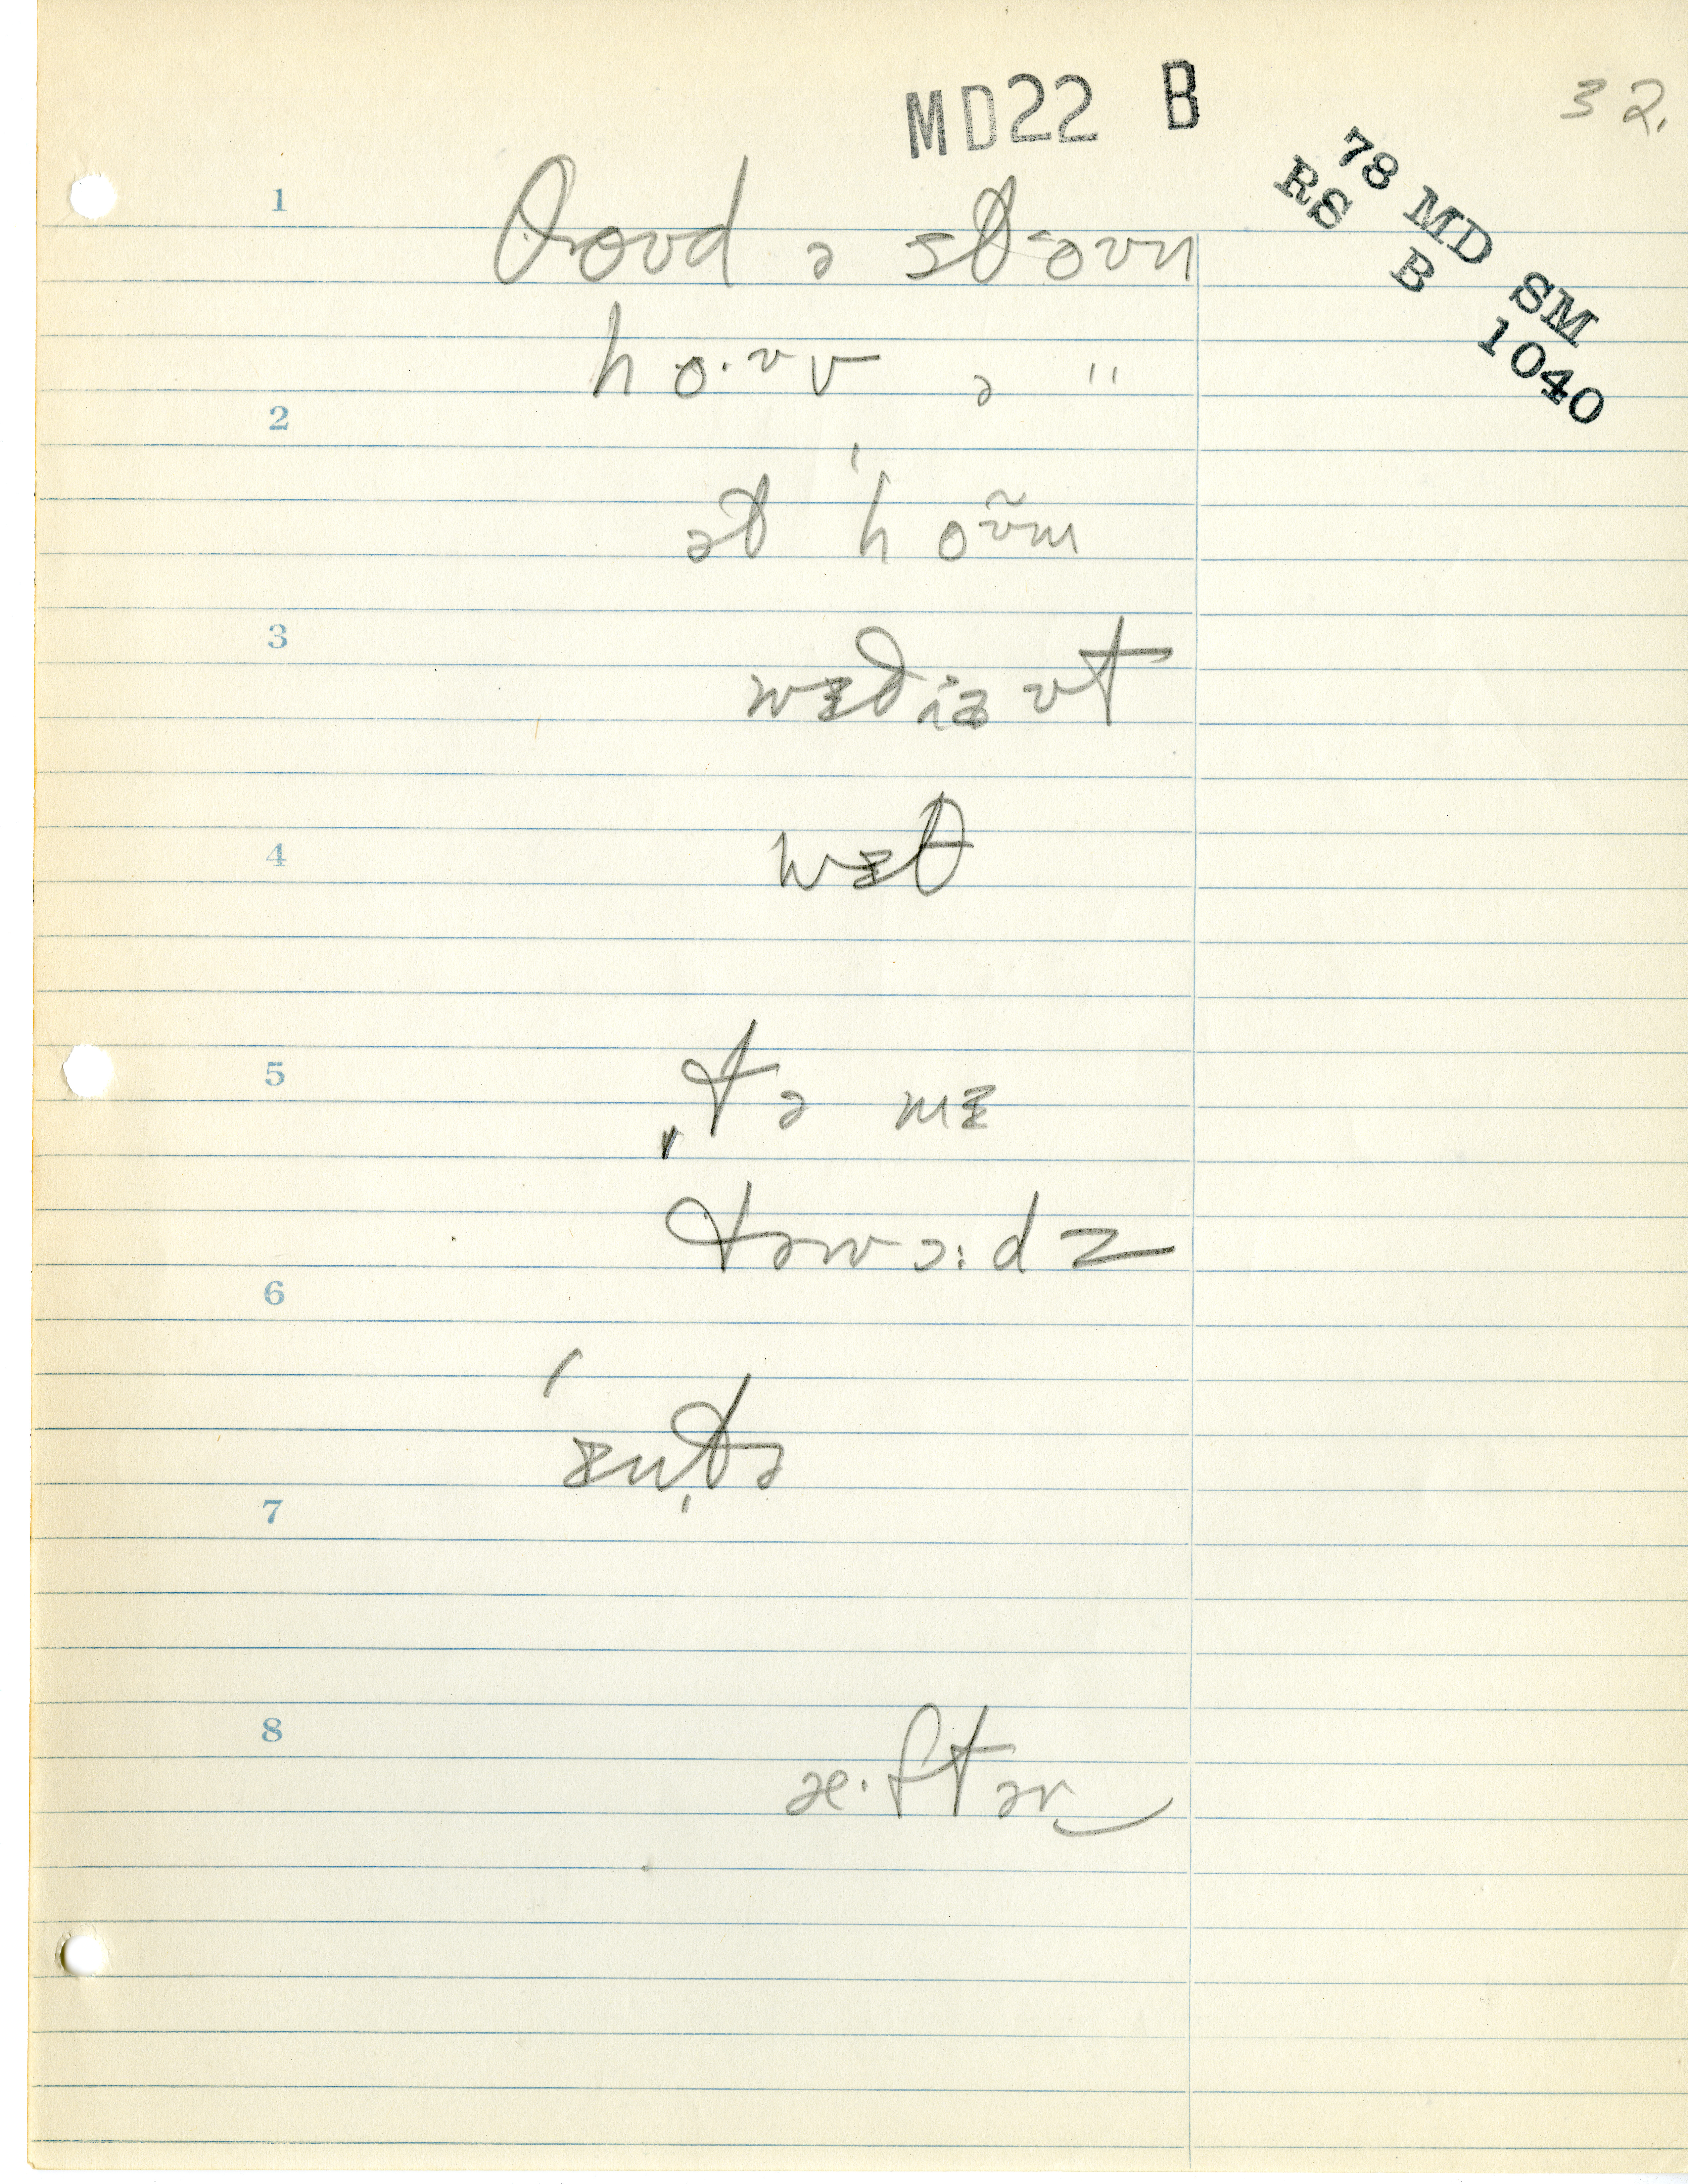 MD22 B
32.
78 MD SM
RS B 1040
1
θroʊd ə stoʊn
hoˑʊv ə "
2
ət ˈhoʊ̃m
3
wɪðɪəʊt
4
wɪθ
5
tə mɪ
təwɔːdz
6
ˈɪntə
7
8
æˑftər